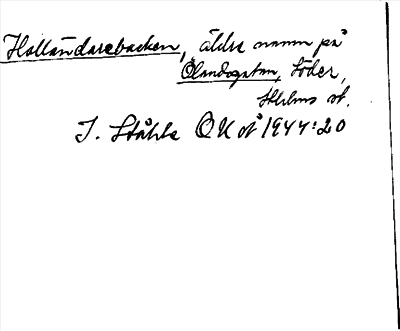 Holländarebacken, äldre namn på
Ölandsgatan, Söder,
Sthlms st.
I. Ståhle OK st 1944:20